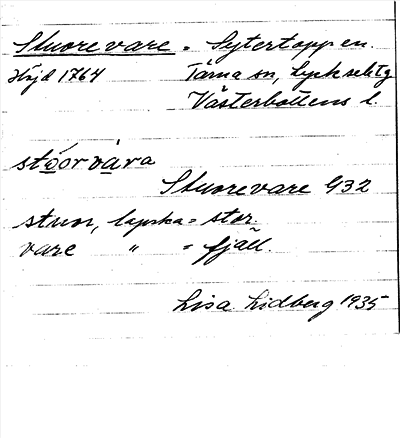 Stuorevare = Sytertoppen.
Höjd 1764 Tärna sn, Lycks.
Västerbottens l.
stóorvàra
Stuorevare G32
stuor, lapska = stor.
vare " = fjäll.
Lisa Lidberg 1935